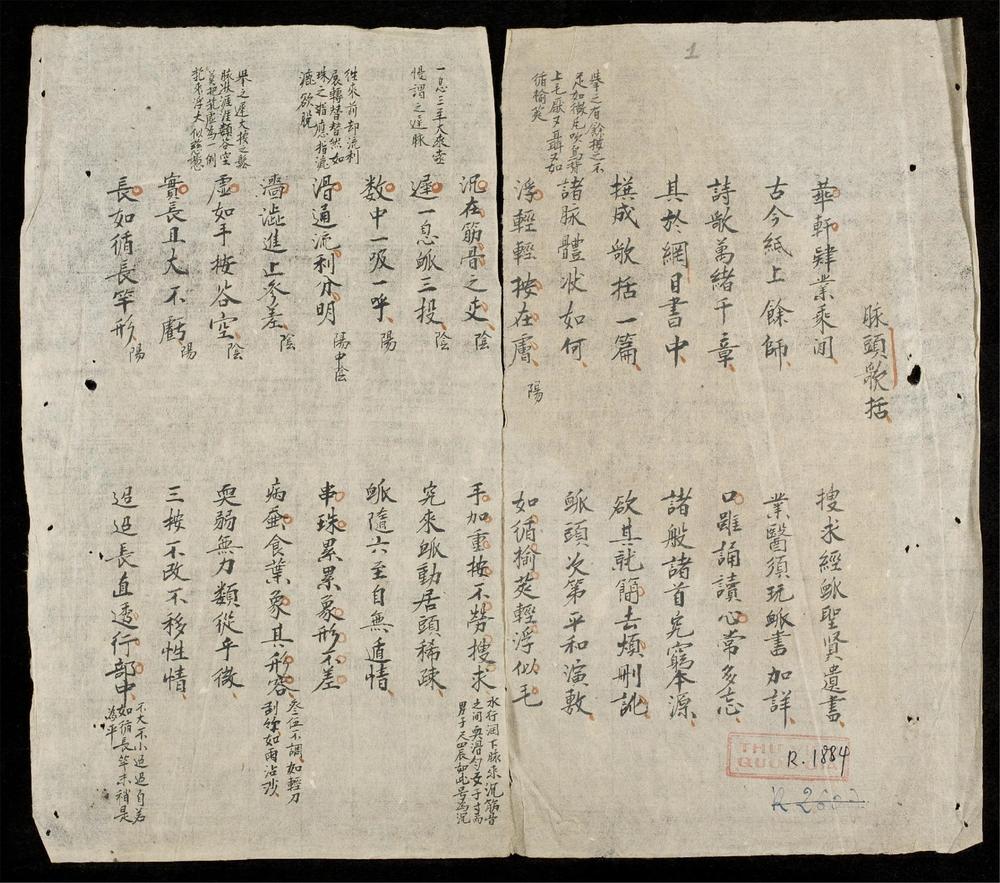 脉頭歌括
華軒肆業乘閒
搜求經脈聖賢遺書
古今紙上餘師
業醫須玩脈書加詳
詩歌萬緒千章
口雖誦讀心常多忘
其於綱目書中
諸般諸首究窮本源
撰成歌括一篇
欲其就簡去煩刪訛
諸脉體狀如何
脈頭次第平和演敷
浮輕輕按在膚
陽
如循榆莢輕浮似毛
舉之有餘按之不
足如微風吹鳥背
上毛厭又聶又如
循榆莢
沉在筋骨之
陰
手加重按不勞搜求
水行潤下脉來沉筋骨
之間
男子
遲一息脈三投
陰
究來脈動居頭稀疎
一息三至大來
慢謂之遲脉
数中一吸一呼
陽
脈隨六至自無遁情
滑通流利分明
陽中陰
串珠累累象形不差
往來前却流利
展轉替替然如
珠之指應指漉
漉欲脫
濇澁進上參差
陰
病蚕食葉象其形容
叁伍不調如輕刀
刮竹如雨沾沙
虛如手按谷空
陰
耎弱無力類從乎微
舉之遲大按之鬆
脉狀
實長且大不虧
陽
三按不改不移性情
長如循長竿形
陽
迢迢長直透行部中
不大不小迢迢自若
如循長竿末稍是
為平
1
THƯ VIỆN
QUỐC GIA
R. 1884